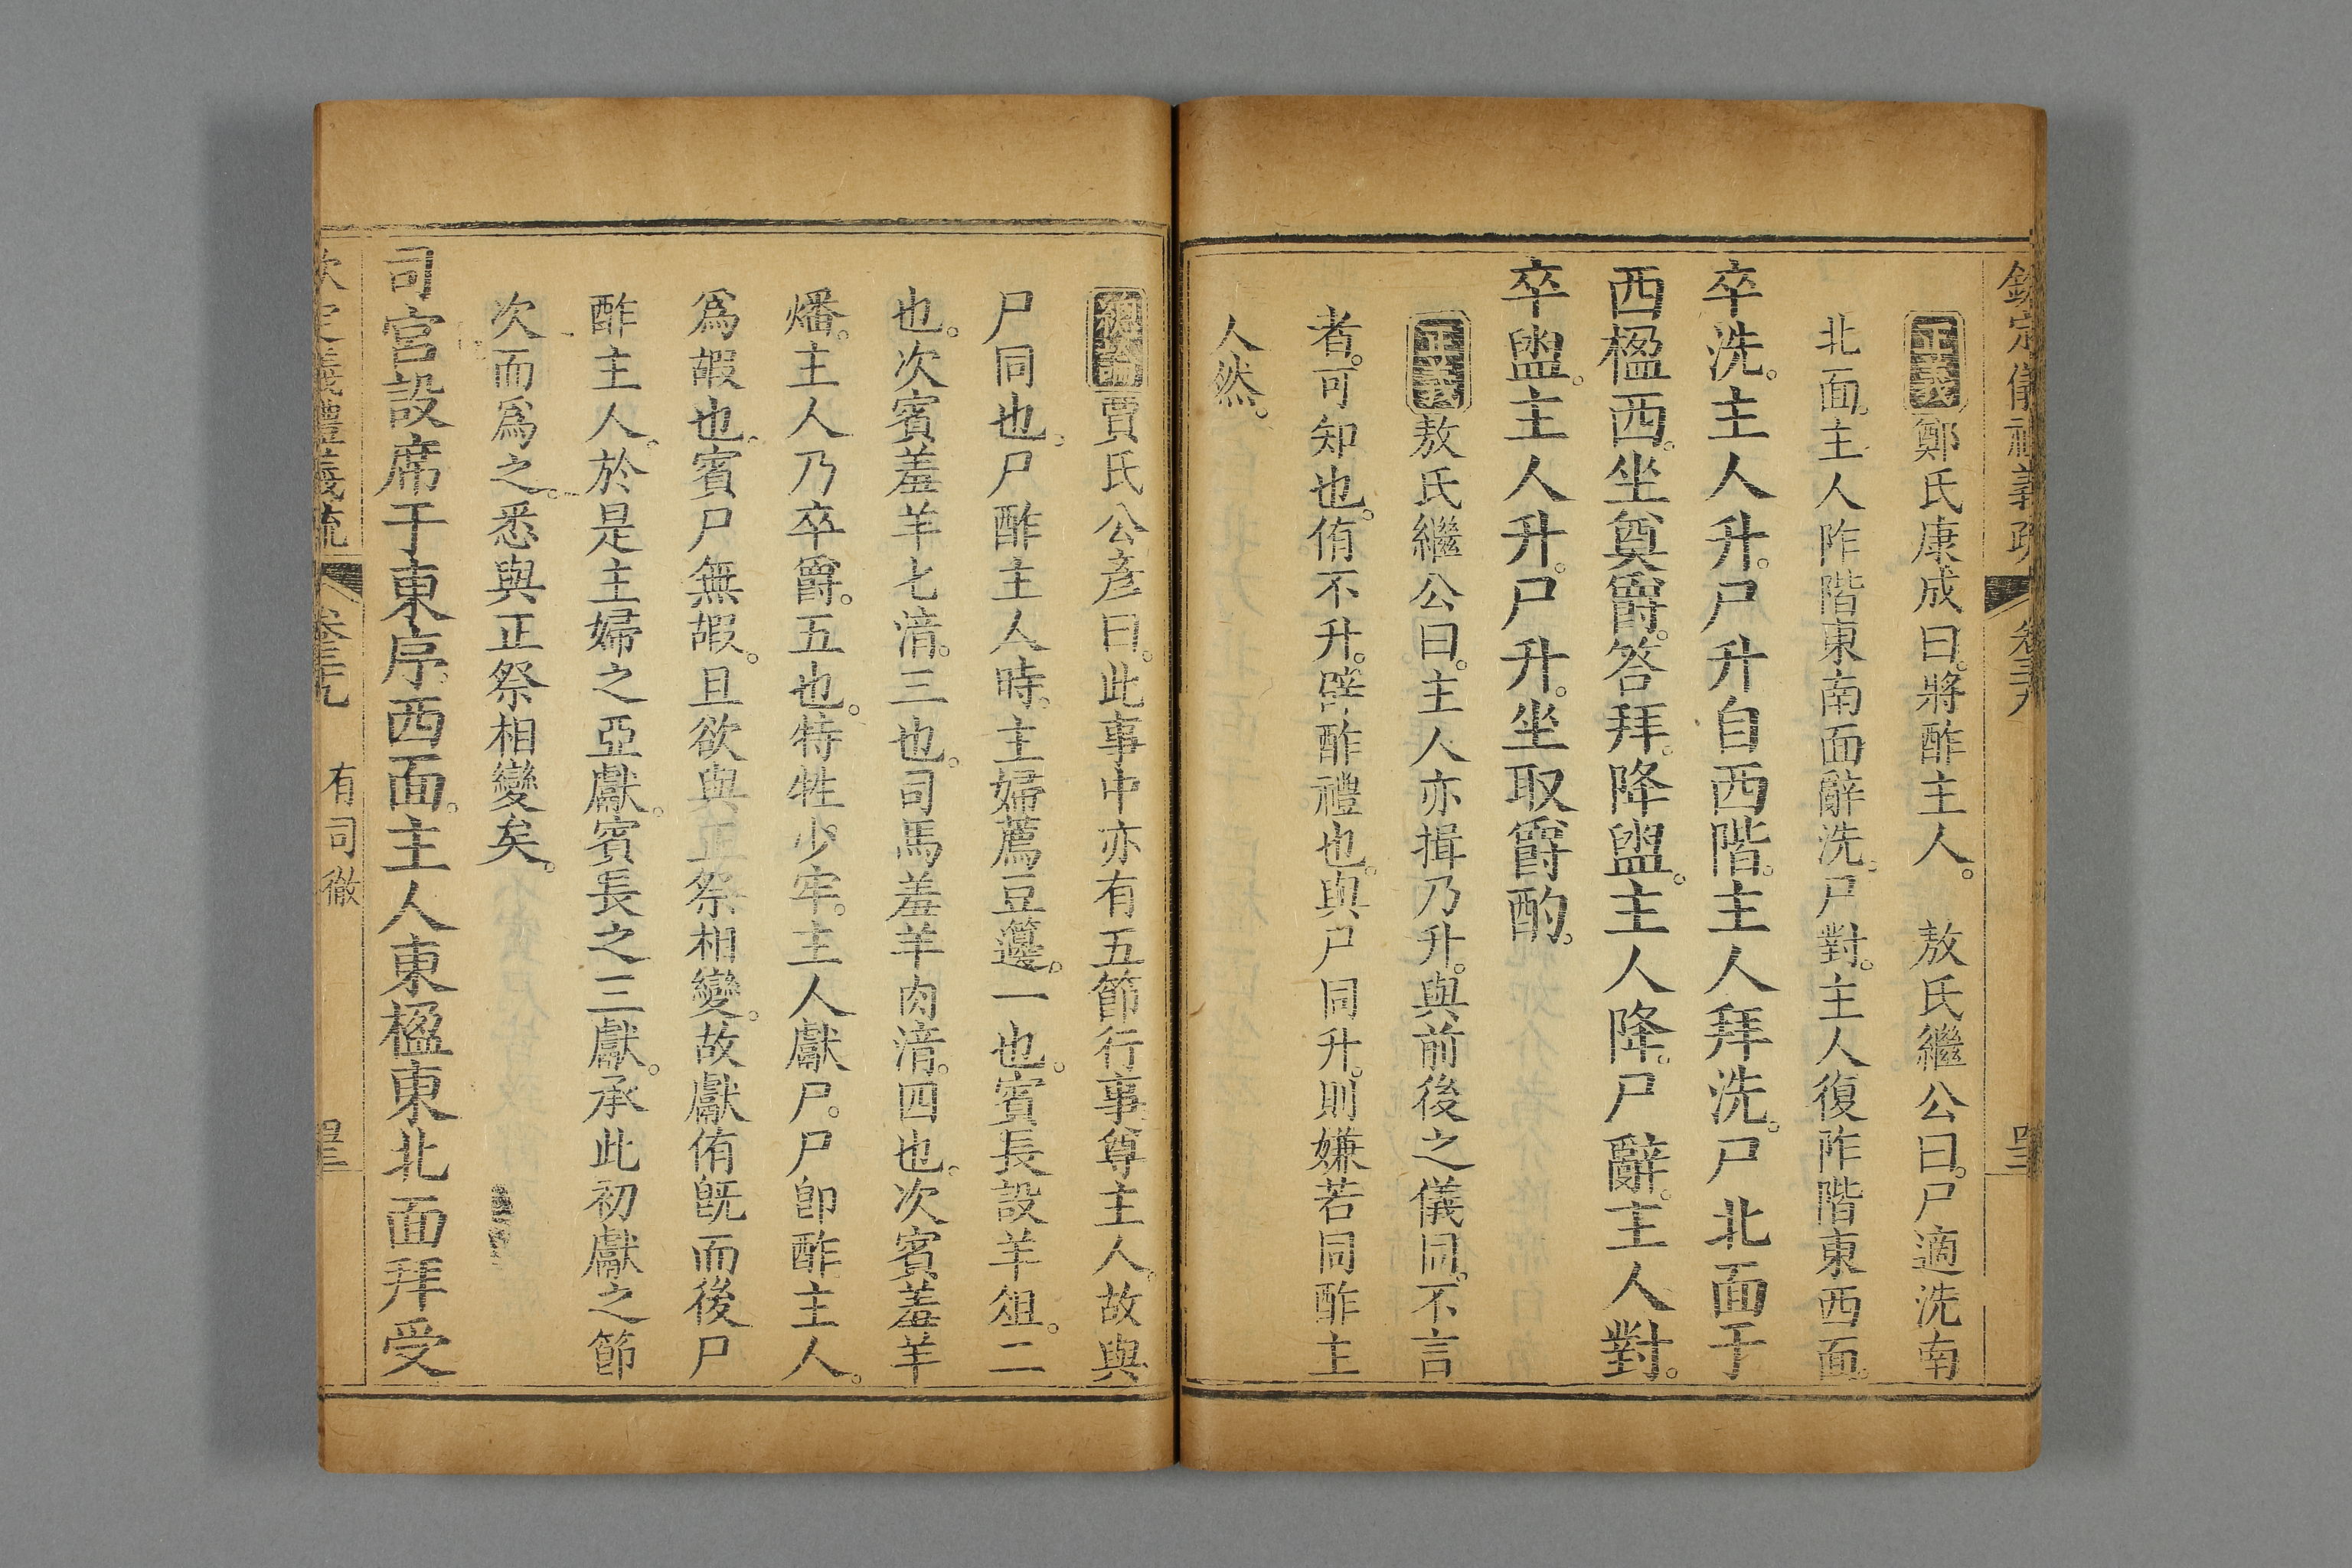 欽定儀禮義疏 卷三十九 四十三
正義鄭氏康成曰。將酢主人。 敖氏繼公曰。尸適洗南
北面。主人阼階東南面辭洗。尸對。主人復阼階東西面。
卒洗。主人升。尸升自西階。主人拜洗。尸北面于
西楹西。坐奠爵。答拜。降盥。主人降。尸辭。主人對。
卒盥。主人升。尸升。坐取爵酌。
正義敖氏繼公曰。主人亦揖乃升。與前後之儀同。不言
者。可知也。侑不升。辟酢禮也。與尸同升。則嫌若同酢主
人然。
總論賈氏公彥曰。此事中亦有五節行事尊主人。故與
尸同也。尸酢主人時。主婦薦豆籩。一也。賓長設羊俎。二
也。次賓羞羊匕湆。三也。司馬羞羊肉湆。四也。次賓羞羊
燔。主人乃卒爵。五也。特牲少牢。主人獻尸。尸卽酢主人。
爲嘏也。賓尸無嘏。且欲與正祭相變。故獻侑旣而後尸
酢主人。於是主婦之亞獻。賓長之三獻。承此初獻之節
次而爲之。悉與正祭相變矣。
司宮設席于東序。西面。主人東楹東北面拜受
欽定儀禮義疏 卷三十九 有司徹 四十三